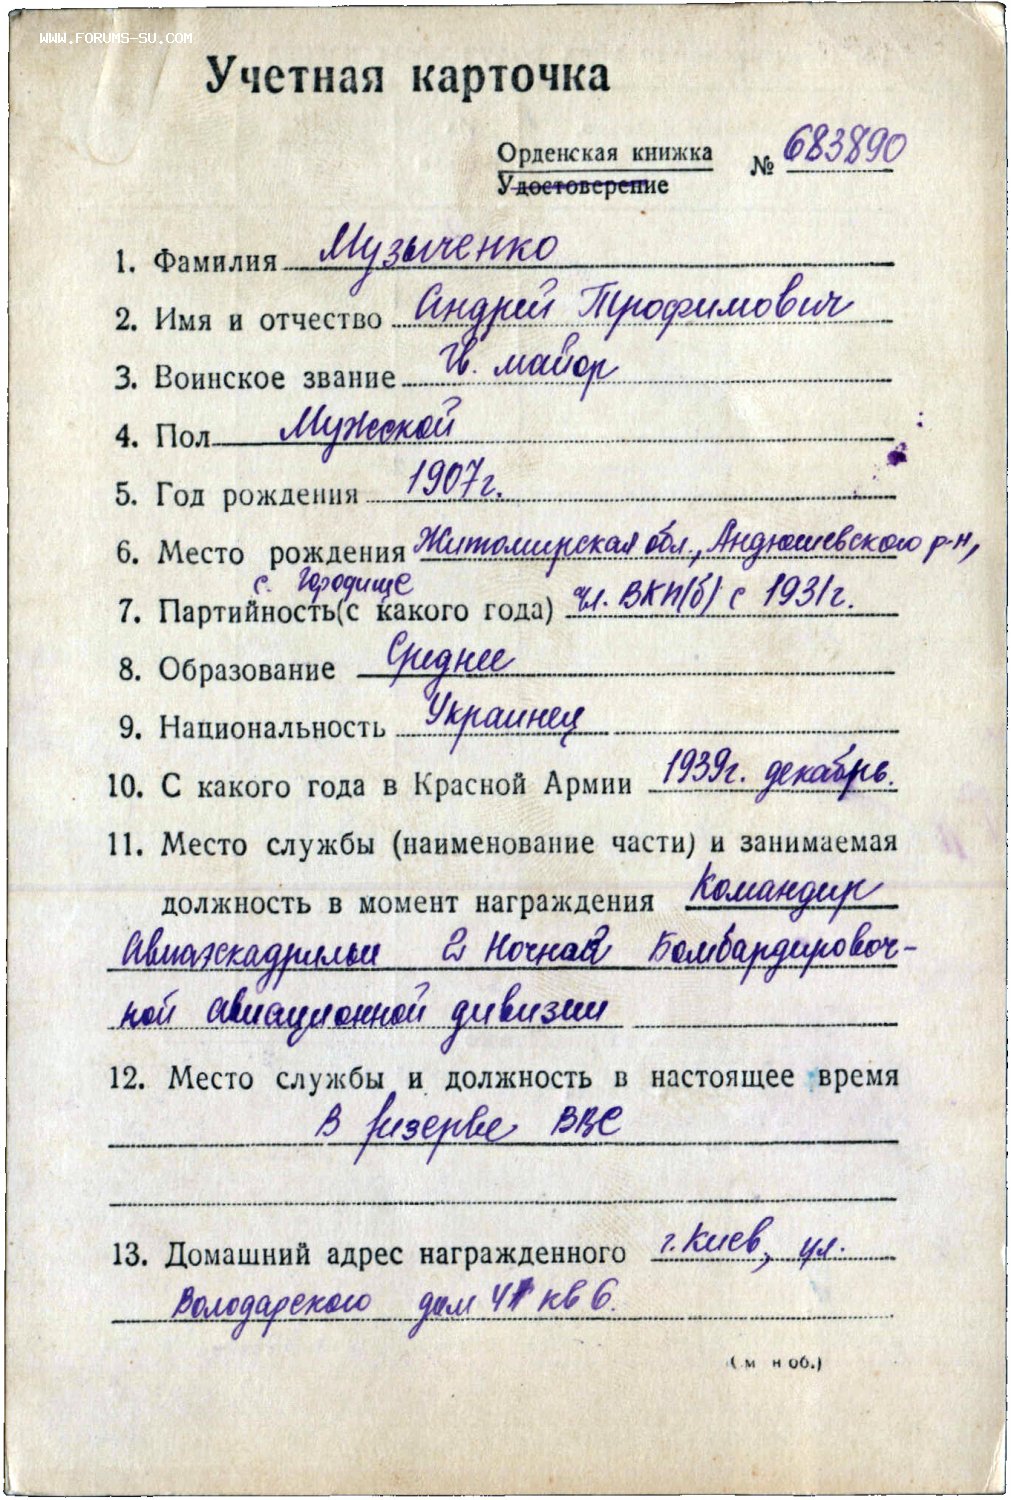 WWW.FORUMS-SU.COM
Учетная карточка
Орденская книжка № 683890
Удостоверение
1. Фамилия Музыченко
2. Имя и отчество Андрей Трофимович
3. Воинское звание Гв. майор
4. Пол Мужской
5. Год рождения 1907г.
6. Место рождения Житомирская обл., Андюшевского р-н,
с. Городище
7. Партийность (с какого года) чл. ВКП(б) с 1931г.
8. Образование Среднее
9. Национальность Украинец
10. С какого года в Красной Армии 1939г. декабрь.
11. Место службы (наименование части) и занимаемая
должность в момент награждения Командир
Авиаэскадрильи 2й Ночной Бомбардировоч-
ной авиационной дивизии
12. Место службы и должность в настоящее время
В резерве ВВС
13. Домашний адрес награжденного г. Киев, ул.
Володарского дом 41 кв 6.
(см на об.)